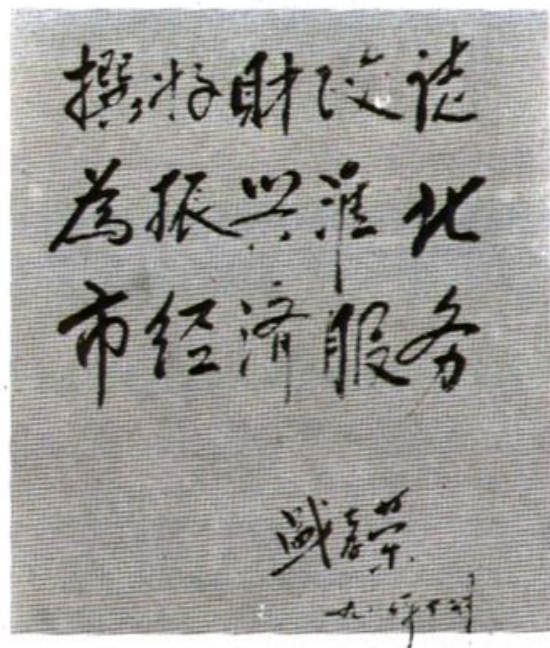 撰好财政志
為振兴淮北
市经济服务